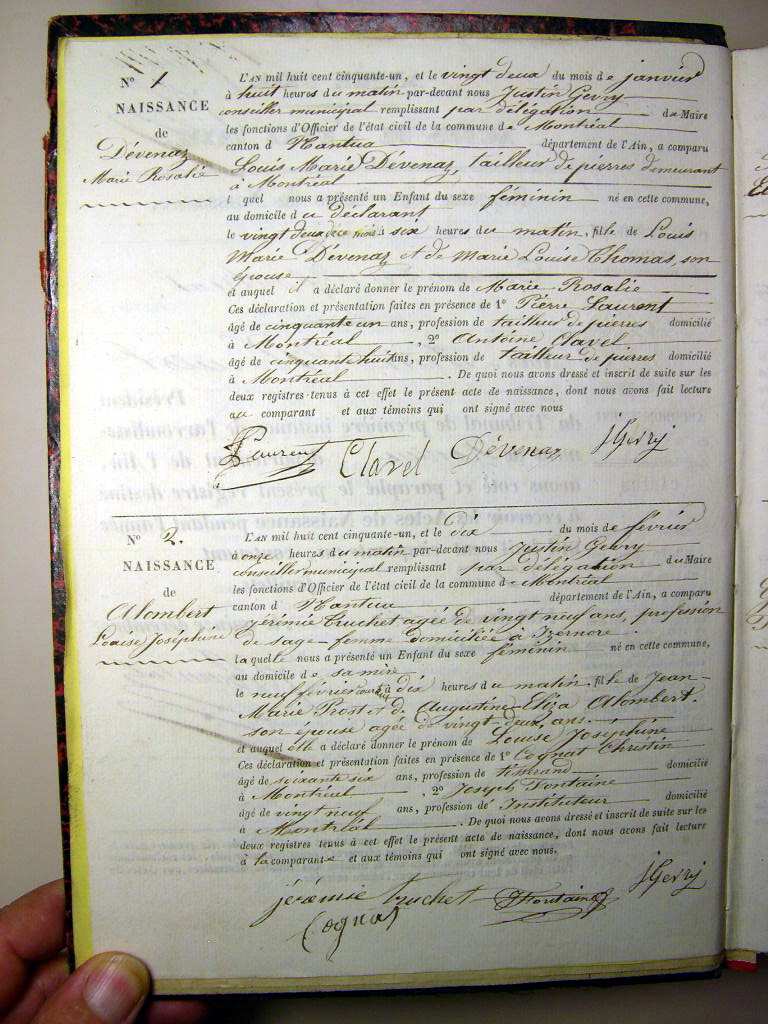 N° 1
NAISSANCE
de
Dévenaz
Marie Rosalie
L'AN mil huit cent cinquante-un, et le vingt deux du mois de janvier
à huit heures du matin par-devant nous Justin Gevry
conseiller municipal remplissant par délégation du Maire
les fonctions d'Officier de l'état civil de la commune de Montréal
canton d Nantua département de l'Ain, a comparu
Louis Marie Dévenaz, tailleur de pierres demeurant
à Montréal
lequel nous a présenté un Enfant du sexe féminin né en cette commune,
au domicile du déclarant
le vingt deux à six heures du matin, fille de Louis
Marie Dévenaz et de Marie Louise Thomas, son
épouse
et auquel il a déclaré donner le prénom de Marie Rosalie
Ces déclaration et présentation faites en présence de 1° Pierre Laurent
âgé de cinquante un ans, profession de tailleur de pierres domicilié
à Montréal, 2° Antoine Clavel
âgé de cinquante huit ans, profession de tailleur de pierres domicilié
à Montréal. De quoi nous avons dressé et inscrit de suite sur les
deux registres tenus à cet effet le présent acte de naissance, dont nous avons fait lecture
au comparant et aux témoins qui ont signé avec nous
Laurent Clavel Dévenaz JGevry
N° 2.
NAISSANCE
de
Alombert
Louise Joséphine
L'AN mil huit cent cinquante-un, et le dix du mois de février
à onze heures du matin par-devant nous Justin Gevry
conseiller municipal remplissant par délégation du Maire
les fonctions d'Officier de l'état civil de la commune de Montréal
canton d Nantua département de l'Ain, a comparu
Jérémie Truchet agée de vingt neuf ans, profession
de sage-femme domiciliée à Izernore.
laquelle nous a présenté un Enfant du sexe féminin né en cette commune,
au domicile de sa mère
le neuf février à dix heures du matin, fille de Jean-
Marie Prost et de Augustine Eliza Alombert.
son épouse agée de vingt deux ans.
et auquel elle a déclaré donner le prénom de Louise Joséphine
Ces déclaration et présentation faites en présence de 1° Cognat Christin
âgé de soixante six ans, profession de domicilié
à Montréal, 2° Joseph Fontaine
âgé de vingt neuf ans, profession de Instituteur domicilié
à Montréal. De quoi nous avons dressé et inscrit de suite sur les
deux registres tenus à cet effet le présent acte de naissance, dont nous avons fait lecture
à la comparante et aux témoins qui ont signé avec nous.
jérémie truchet JFontaine JGevry
Cognat